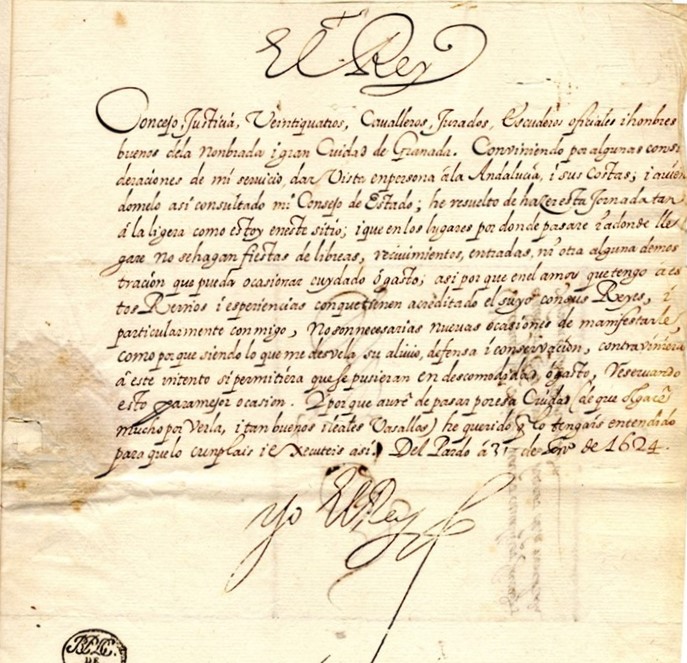 El Rey
Concejo, Justicia, Veintiquatros, Cavalleros, Jurados, Escuderos oficiales i hombres
buenos dela Nonbrada i gran Cuidad de Granada. Conviniendo por algunas consi
deraciones de mi servicio, dar Vista en persona ála Andalucia, i sus Costas; i avien
domelo asi consultado mi Consejo de Estado; he resuelto de hazer esta Jornada tan
á la ligera como estoy eneste sitio; i que en los lugares por donde pasare i adonde lle
gare No se hagan fiestas de libreas, recivimientos, entradas, ni otra alguna demos
tración que pueda ocasionar cuydado ó gasto; asi por que en el amor que tengo a es
tos Reinos i esperiencias con que tienen acreditado el suyo con sus Reyes, i
particularmente conmigo, No son necesarias nuevas ocasiones de manifestarle,
como porque siendo lo que me desvela su alivio, defensa i conservación, contraviniera
á este intento si permitiera que se pusieran en descomodidad ó gasto, Reservando
esto para mejor ocasion. I por que avré de pasar por esa Ciudad (de que
mucho por Verla, i tan buenos i leales Vasallos) he querido q̃ lo tengais entendido
para que lo cunplais i executeis asi. Del Pardo á 31 de En.º de 1624.
Yo El Rey
DE